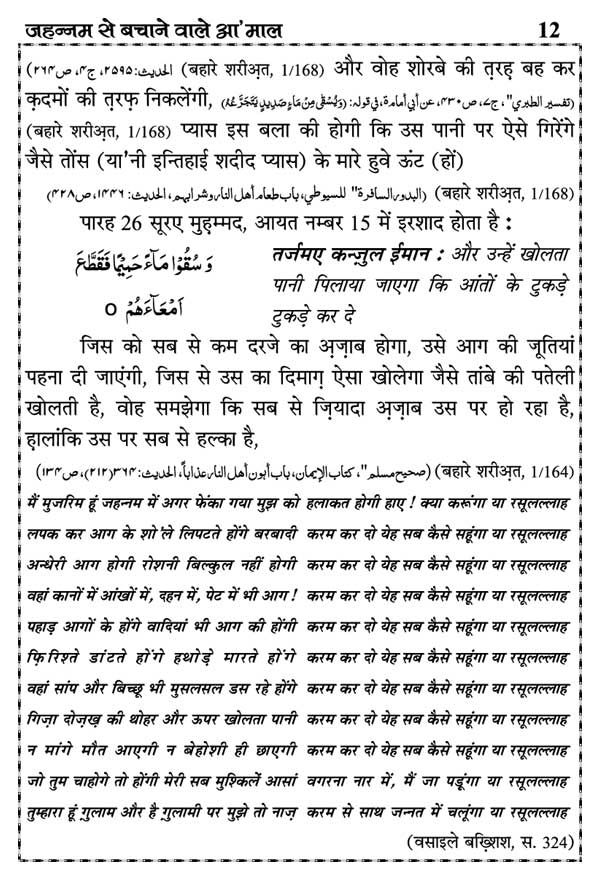 जहन्नम से बचाने वाले आ'माल 12
(बहारे शरीअ़त, 1/168) الحديث:٢٥٩٥، ج٤، ص٢٦٤) और वोह शोरबे की त़रह़ बह कर
क़दमों की त़रफ़ निकलेंगी, (تفسير الطبري"، ج٧، ص٤٣٠، عن أبي أمامة، في قوله: (وَيُسْقٰى مِنْ مَّآءٍ صَدِيْدٍ يَّتَجَرَّعُهٗ)
(बहारे शरीअ़त, 1/168) प्यास इस बला की होगी कि उस पानी पर ऐसे गिरेंगे
जैसे तोंस (या'नी इन्तिहाई शदीद प्यास) के मारे हुवे ऊंट (हों)
(البدور السافرة" للسيوطي، باب طعام أهل النار وشرابهم، الحديث: ١٤٤٦، ص٤٢٨) (बहारे शरीअ़त, 1/168)
पारह 26 सूरए मुह़म्मद, आयत नम्बर 15 में इरशाद होता है :
وَ سُقُوْا مَآءً حَمِیْمًا فَقَطَّعَ
اَمْعَآءَهُمْ ○
तर्जमए कन्ज़ुल ईमान : और उन्हें खोलता
पानी पिलाया जाएगा कि आंतों के टुकड़े
टुकड़े कर दे
जिस को सब से कम दरजे का अ़ज़ाब होगा, उसे आग की जूतियां
पहना दी जाएंगी, जिस से उस का दिमाग़ ऐसा खोलेगा जैसे तांबे की पतेली
खोलती है, वोह समझेगा कि सब से ज़ियादा अ़ज़ाब उस पर हो रहा है,
ह़ालांकि उस पर सब से हल्का है,
(صحيح مسلم"، كتاب الإيمان، باب أهون أهل النار عذاباً، الحديث:٣٦٤(٢١٢)، ص١٣٤) (बहारे शरीअ़त, 1/164)
मैं मुजरिम हूं जहन्नम में अगर फेंका गया मुझ को हलाकत होगी हाए ! क्या करूंगा या रसूलल्लाह
लपक कर आग के शो'ले लिपटते होंगे बरबादी करम कर दो येह सब कैसे सहूंगा या रसूलल्लाह
अन्धेरी आग होगी रोशनी बिल्कुल नहीं होगी करम कर दो येह सब कैसे सहूंगा या रसूलल्लाह
वहां कानों में आंखों में, दहन में, पेट में भी आग ! करम कर दो येह सब कैसे सहूंगा या रसूलल्लाह
पहाड़ आगों के होंगे वादियां भी आग की होंगी करम कर दो येह सब कैसे सहूंगा या रसूलल्लाह
फ़िरिश्ते डांटते होंगे हथोड़े मारते होंगे करम कर दो येह सब कैसे सहूंगा या रसूलल्लाह
वहां सांप और बिच्छू भी मुसलसल डस रहे होंगे करम कर दो येह सब कैसे सहूंगा या रसूलल्लाह
गिज़ा दोज़ख़ की थोहर और ऊपर खोलता पानी करम कर दो येह सब कैसे सहूंगा या रसूलल्लाह
न मांगे मौत आएगी न बेहोशी ही छाएगी करम कर दो येह सब कैसे सहूंगा या रसूलल्लाह
जो तुम चाहोगे तो होंगी मेरी सब मुश्किलें आसां वगरना नार में, मैं जा पड़ूंगा या रसूलल्लाह
तुम्हारा हूं ग़ुलाम और है ग़ुलामी पर मुझे तो नाज़ करम से साथ जन्नत में चलूंगा या रसूलल्लाह
(वसाइले बख़्शिश, स. 324)